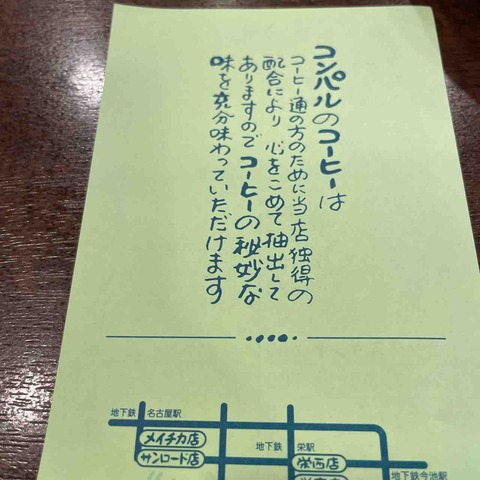 コンパルのコーヒーは
コーヒー通の方のために当店独得の
配合により 心をこめて抽出して
ありますので コーヒーの秘妙な
味を充分味わっていただけます
地下鉄 名古屋駅
メイチカ店
サンロード店
地下鉄 栄駅
栄西店
地下鉄今池駅